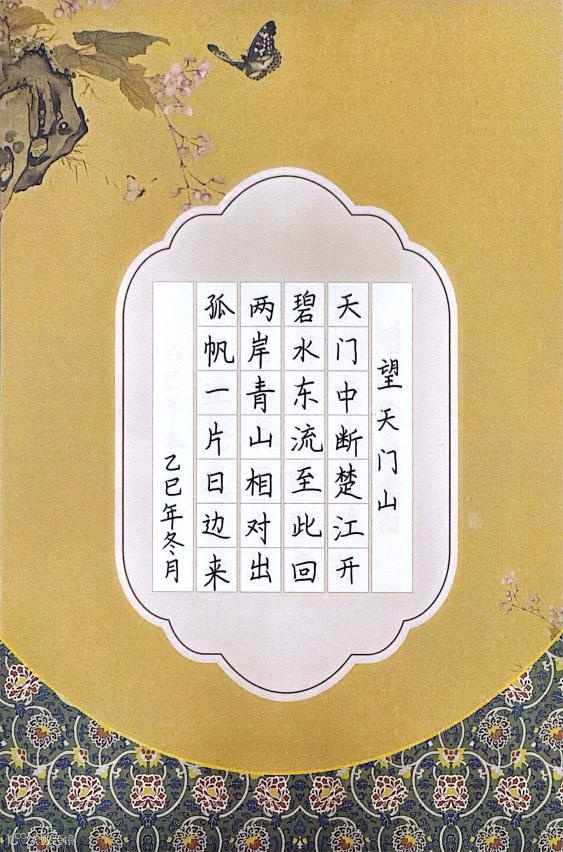 望天门山
天门中断楚江开
碧水东流至此回
两岸青山相对出
孤帆一片日边来
乙巳年冬月